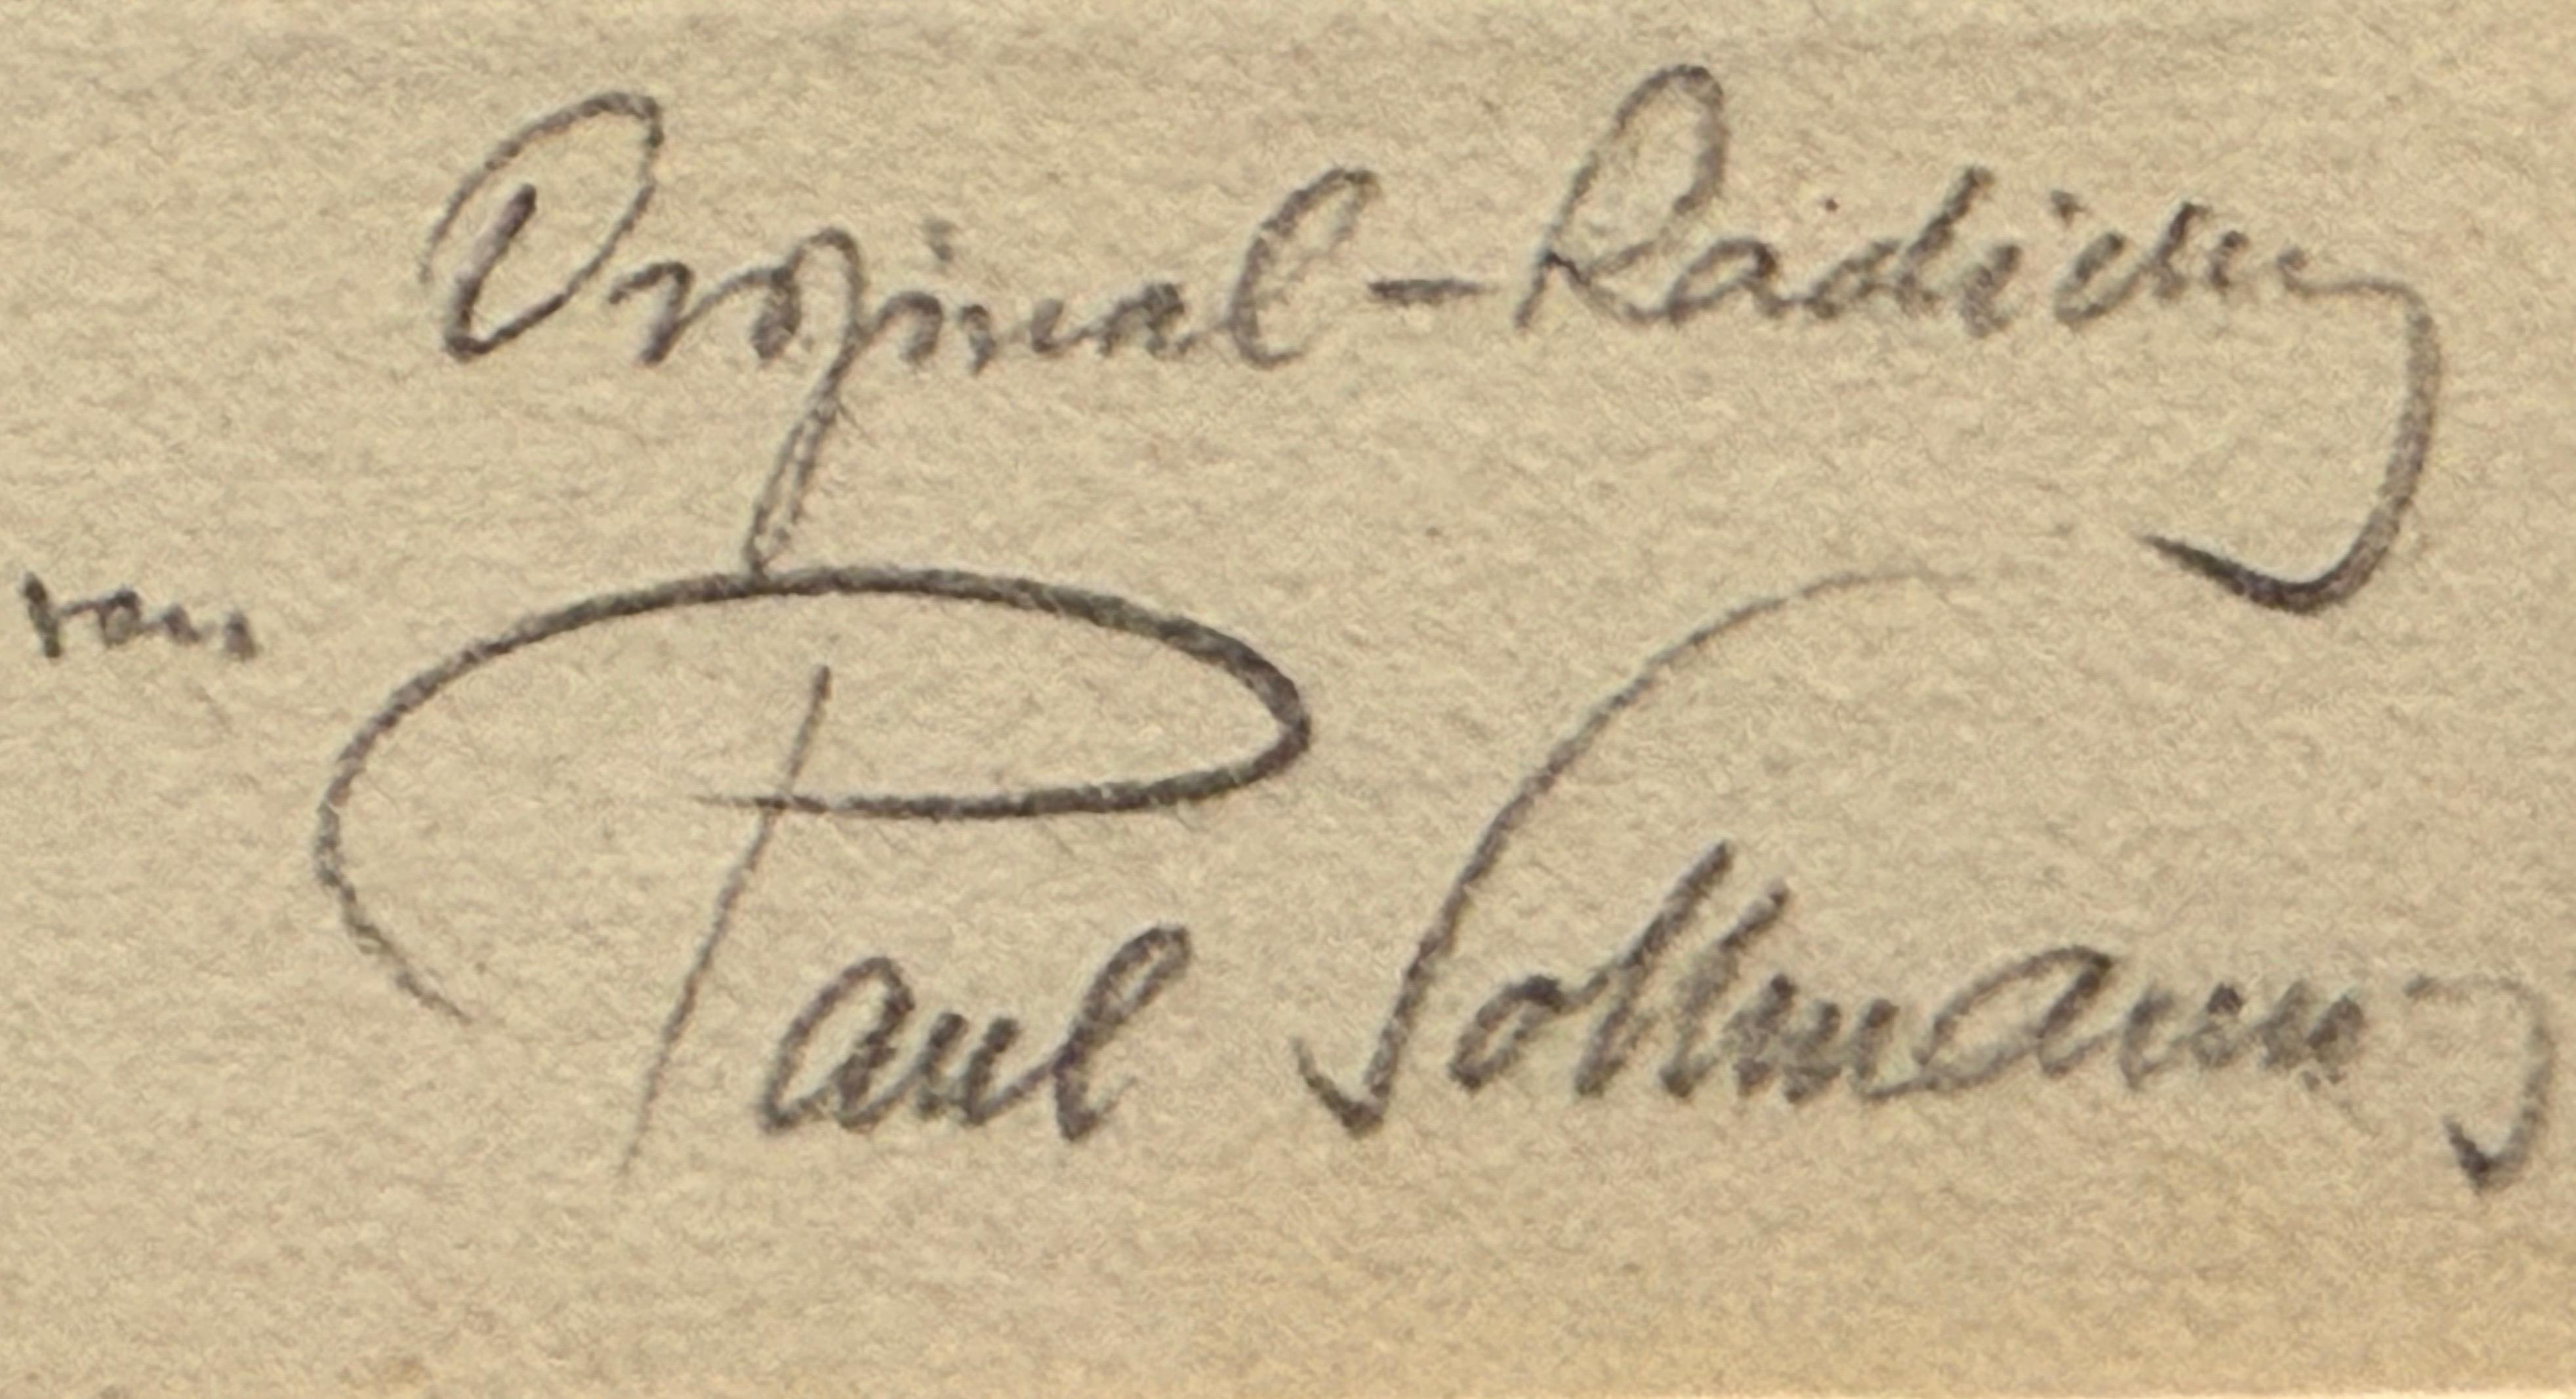 Original-Radierung
von
Paul Sollmann